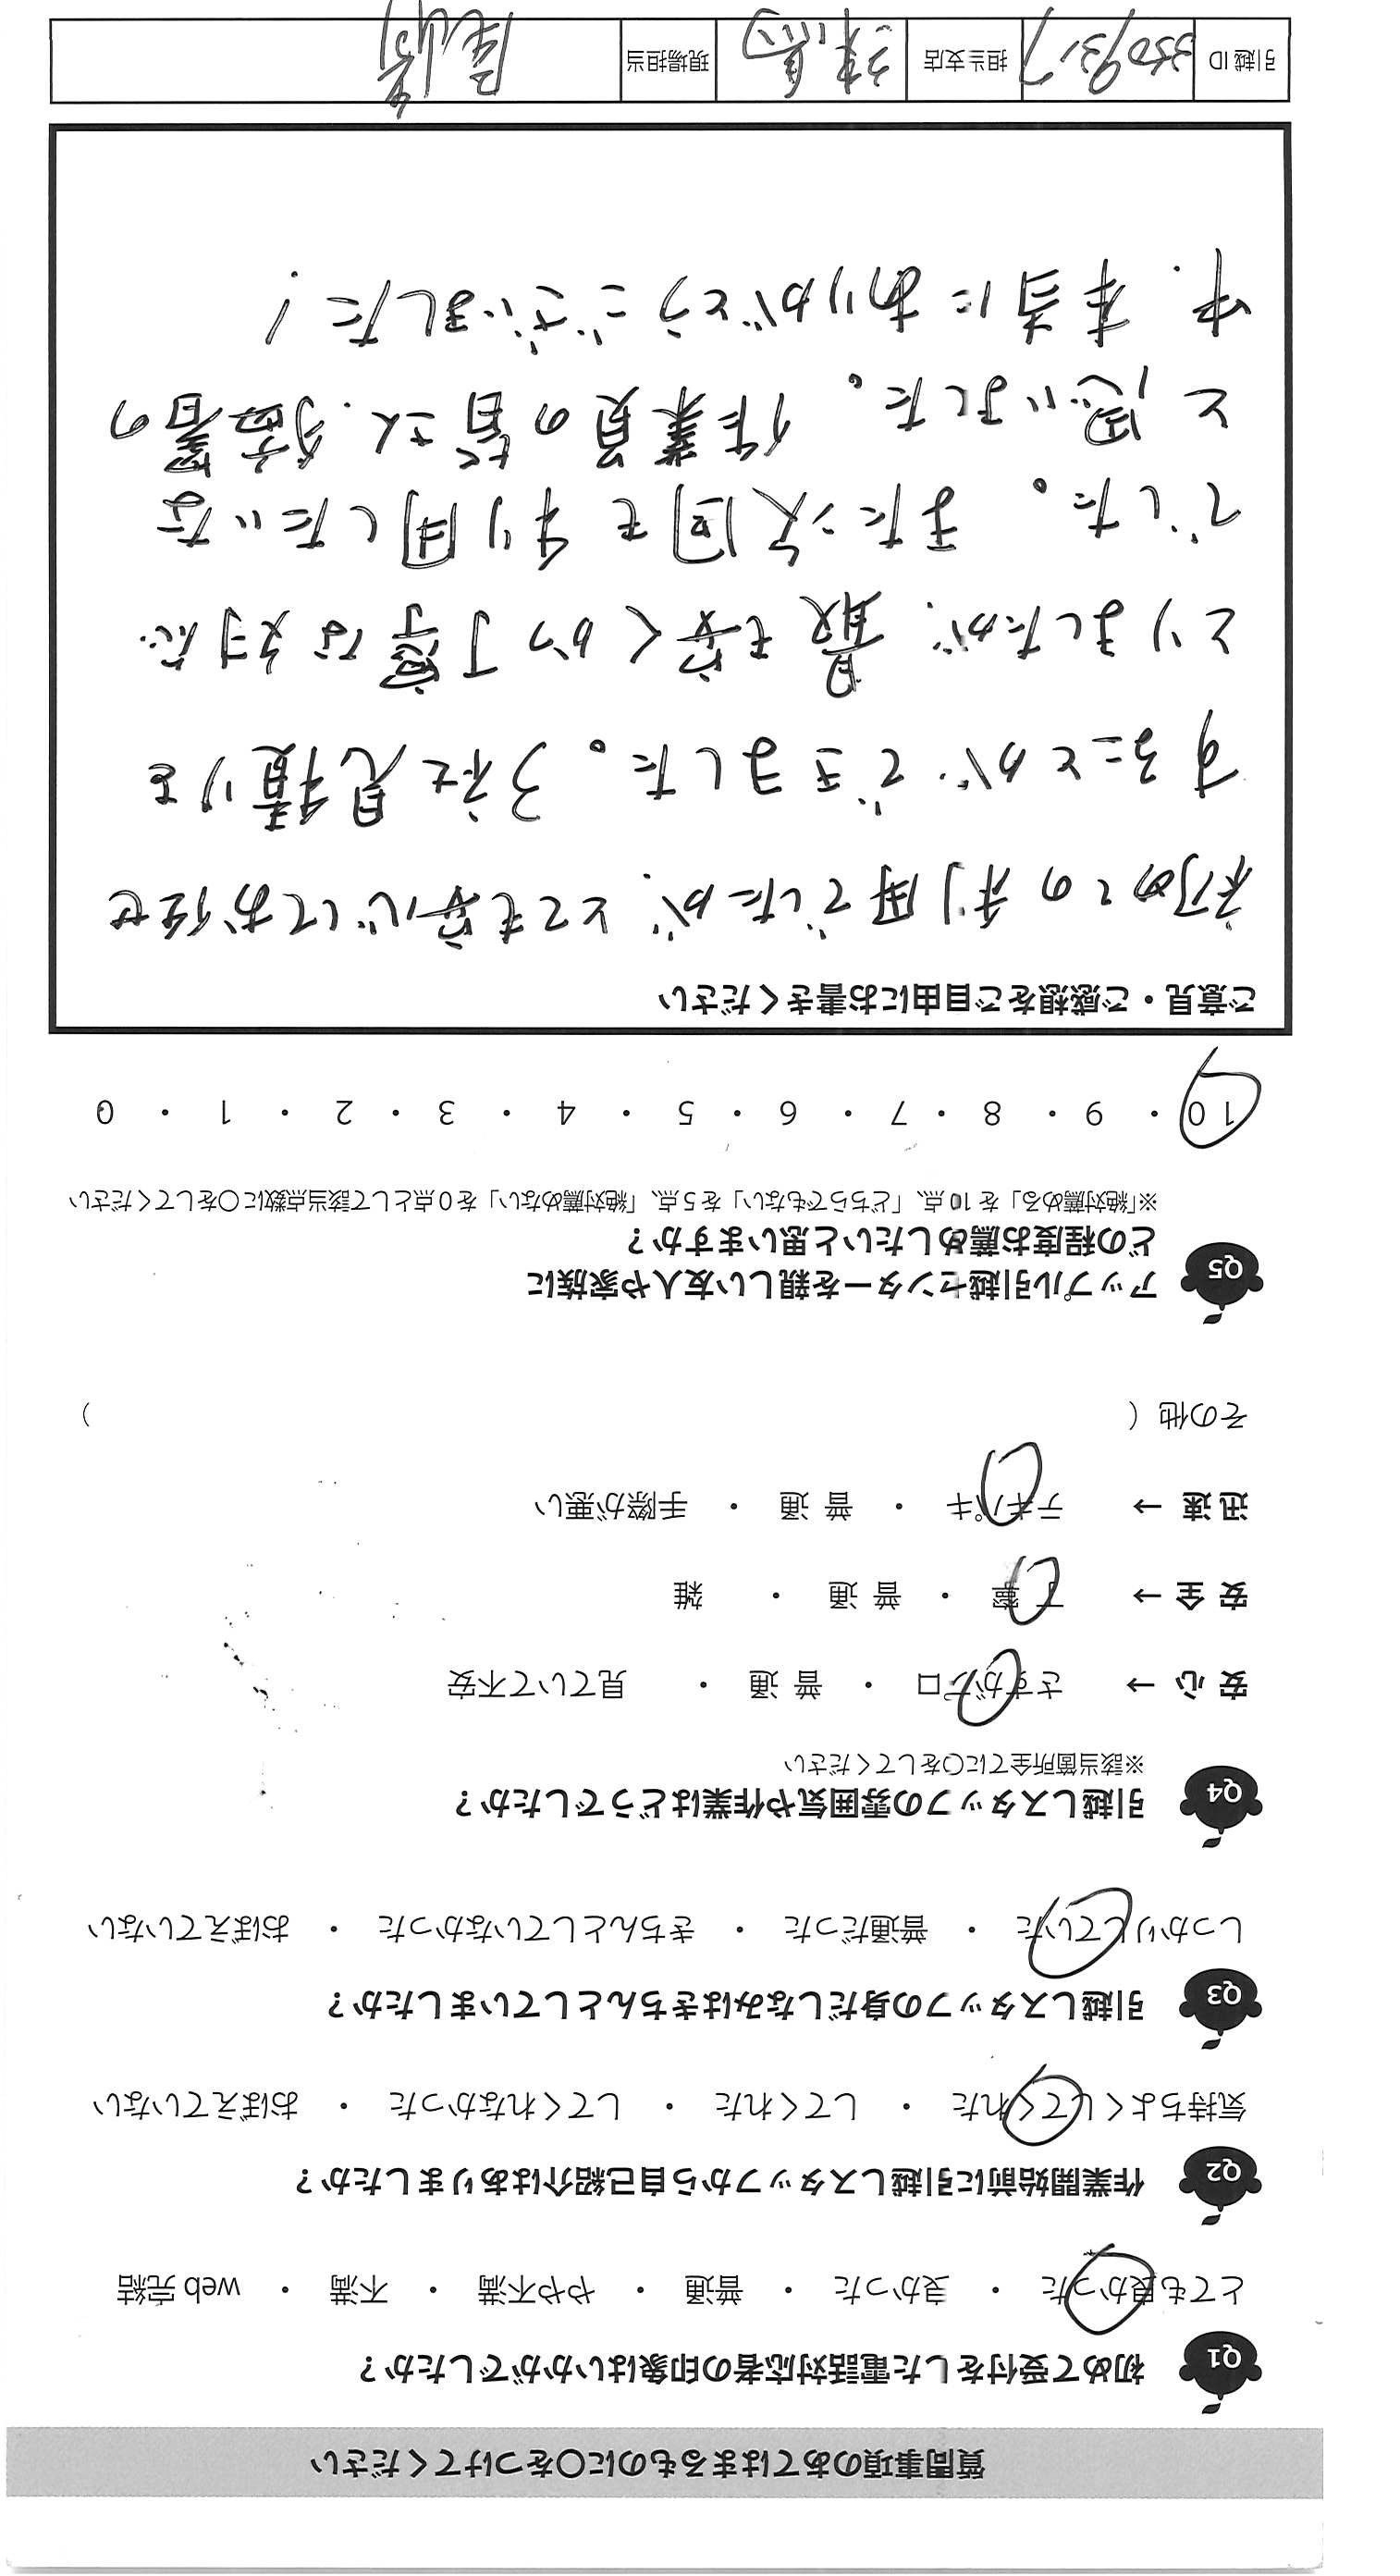 質問事項のあてはまるものに○をつけてください
Q1 初めて受付をした電話対応者の印象はいかがでしたか?
とても良かった ・ 良かった ・ 普通 ・ やや不満 ・ 不満 ・ web 完結
Q2 作業開始前に引越しスタッフから自己紹介はありましたか?
気持ちよくしてくれた ・ してくれた ・ してくれなかった ・ おぼえていない
Q3 引越しスタッフの身だしなみはきちんとしていましたか?
しっかりしていた ・ 普通だった ・ きちんとしていなかった ・ おぼえていない
Q4 引越しスタッフの雰囲気や作業はどうでしたか?
※該当箇所全てに○をしてください
安 心 → さすがプロ ・ 普 通 ・ 見ていて不安
安 全 → 丁 寧 ・ 普 通 ・ 雑
迅 速 → テキパキ ・ 普 通 ・ 手際が悪い
その他 ( )
Q5 アップル引越センターを親しい友人や家族に
どの程度お薦めしたいと思いますか?
※「絶対薦める」を 10 点、「どちらでもない」を 5 点、「絶対薦めない」を 0 点として該当点数に○をしてください
10 ・ 9 ・ 8 ・ 7 ・ 6 ・ 5 ・ 4 ・ 3 ・ 2 ・ 1 ・ 0
ご意見・ご感想をご自由にお書きください
初めての利用でしたが、とても安心してお任せ
することができました。3社見積りを
とりましたが、最も安くかつ丁寧な対応
でした。また次回も利用したいな
と思いました。作業員の皆さん、猛暑の
中、本当にありがとうございました!
引越 ID 担当支店 練馬 現場担当 尾崎